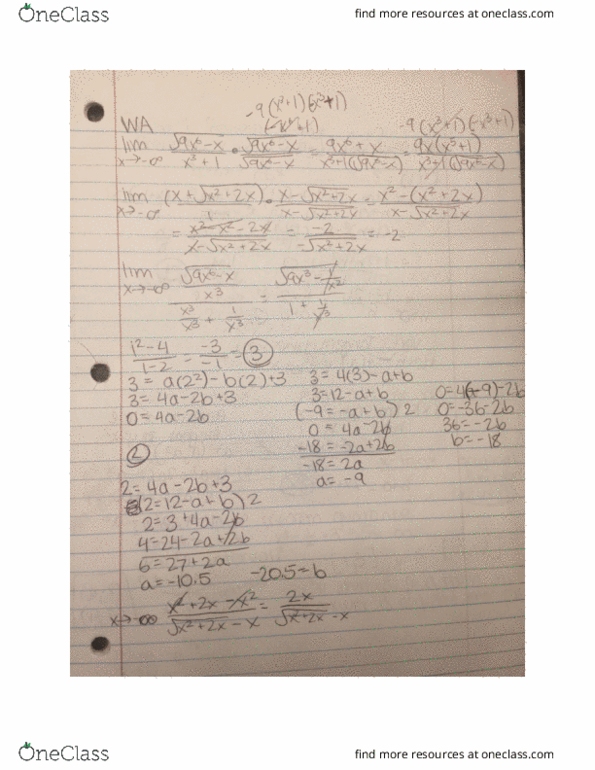 OneClass
find more resources at oneclass.com
-9(x³+1)(x³+1)
WA (-x⁶+1) -9(x³+1)(-x³+1)
lim x→-∞ √9x⁶-x / x³+1 • √9x⁶-x / √9x⁶-x = 9x⁶+x / x³+1(√9x⁶-x) = 9x(x³+1) / x³+1(√9x⁶-x)
lim x→-∞ (x+√x²+2x) • x-√x²+2x / x-√x²+2x = x²-(x²+2x) / x-√x²+2x
= x²-x²-2x / x-√x²+2x = -2 / -√x²+2x = -2
lim x→-∞ √9x⁶-x / x³ / x³/x³ + 1/x³ = √9x³-1/x² / 1+1/x³
1²-4 / 1-2 = -3 / -1 = 3
3=a(2²)-b(2)+3
3=4a-2b+3
0=4a-2b
3=4(3)-a+b
3=12-a+b
(-9=-a+b)2
0=4a-2b
-18=-2a+2b
-18=2a
a=-9
0=4(-9)-2b
0=-36-2b
36=-2b
b=-18
2
2=4a-2b+3
(2=12-a+b)2
2=3+4a-2b
4=24-2a+2b
6=27+2a
a=-10.5 -20.5=b
x→-∞ x²+2x-x² / √x²+2x-x = 2x / √x²+2x-x
OneClass
find more resources at oneclass.com